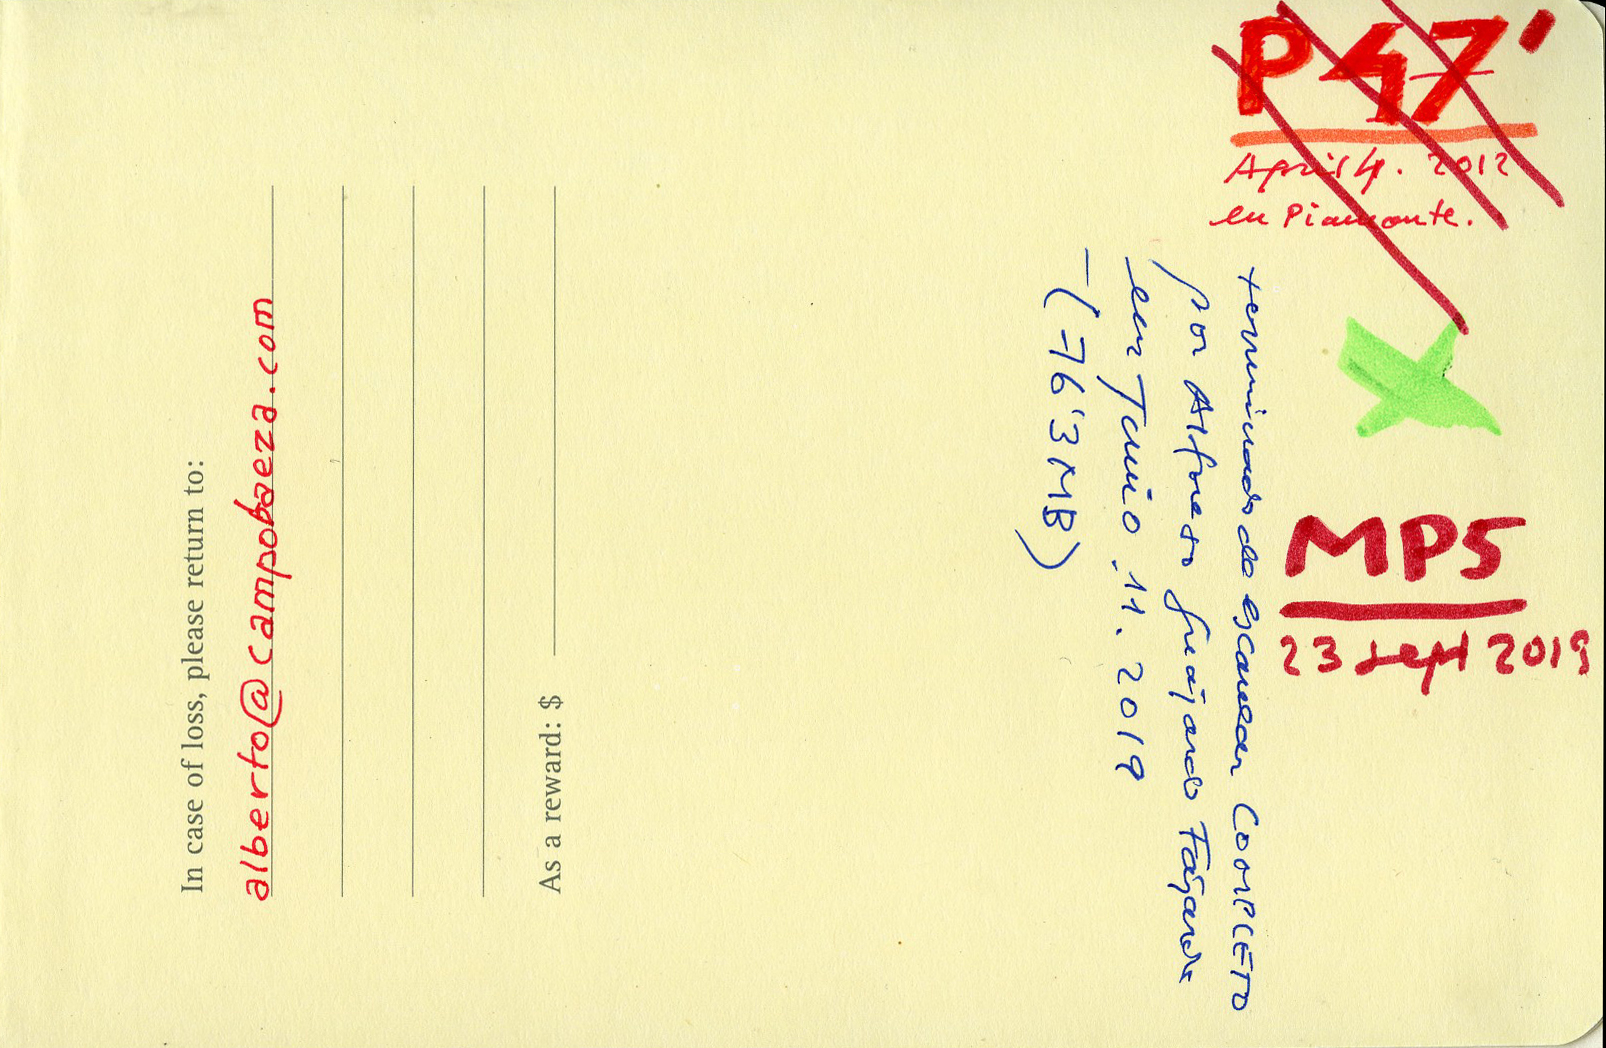 P47'
April 4. 2012
en Piamonte.
MP5
23 sept 2019
terminado de escanear COMPLETO
por Alfonso Guajardo Fajardo
en Junio .11. 2019
-(76'3MB)
In case of loss, please return to:
alberto@campobaeza.com
As a reward: $